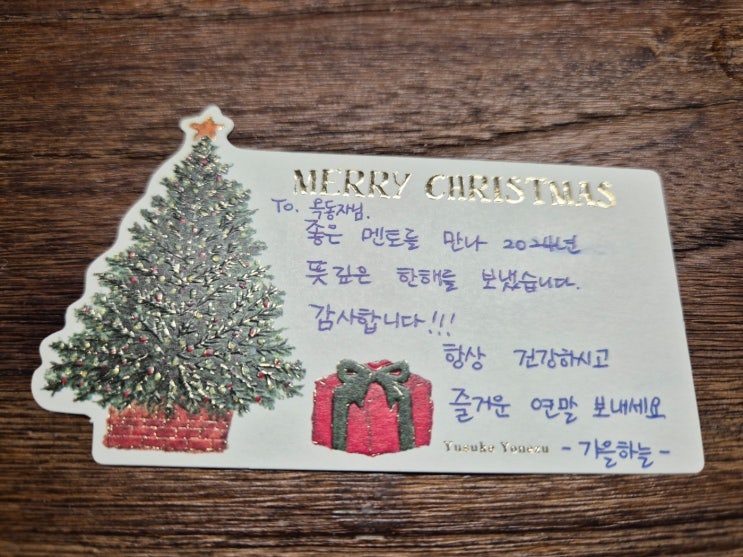 MERRY CHRISTMAS
TO. 옥동자님.
좋은 멘토를 만나 2024년
뜻깊은 한해를 보냈습니다.
감사합니다!!!
항상 건강하시고
즐거운 연말 보내세요
Yusuke Yonezu
- 가을하늘 -